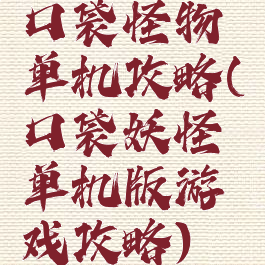 口袋怪物
单机攻略(
口袋妖怪
单机版游
戏攻略)